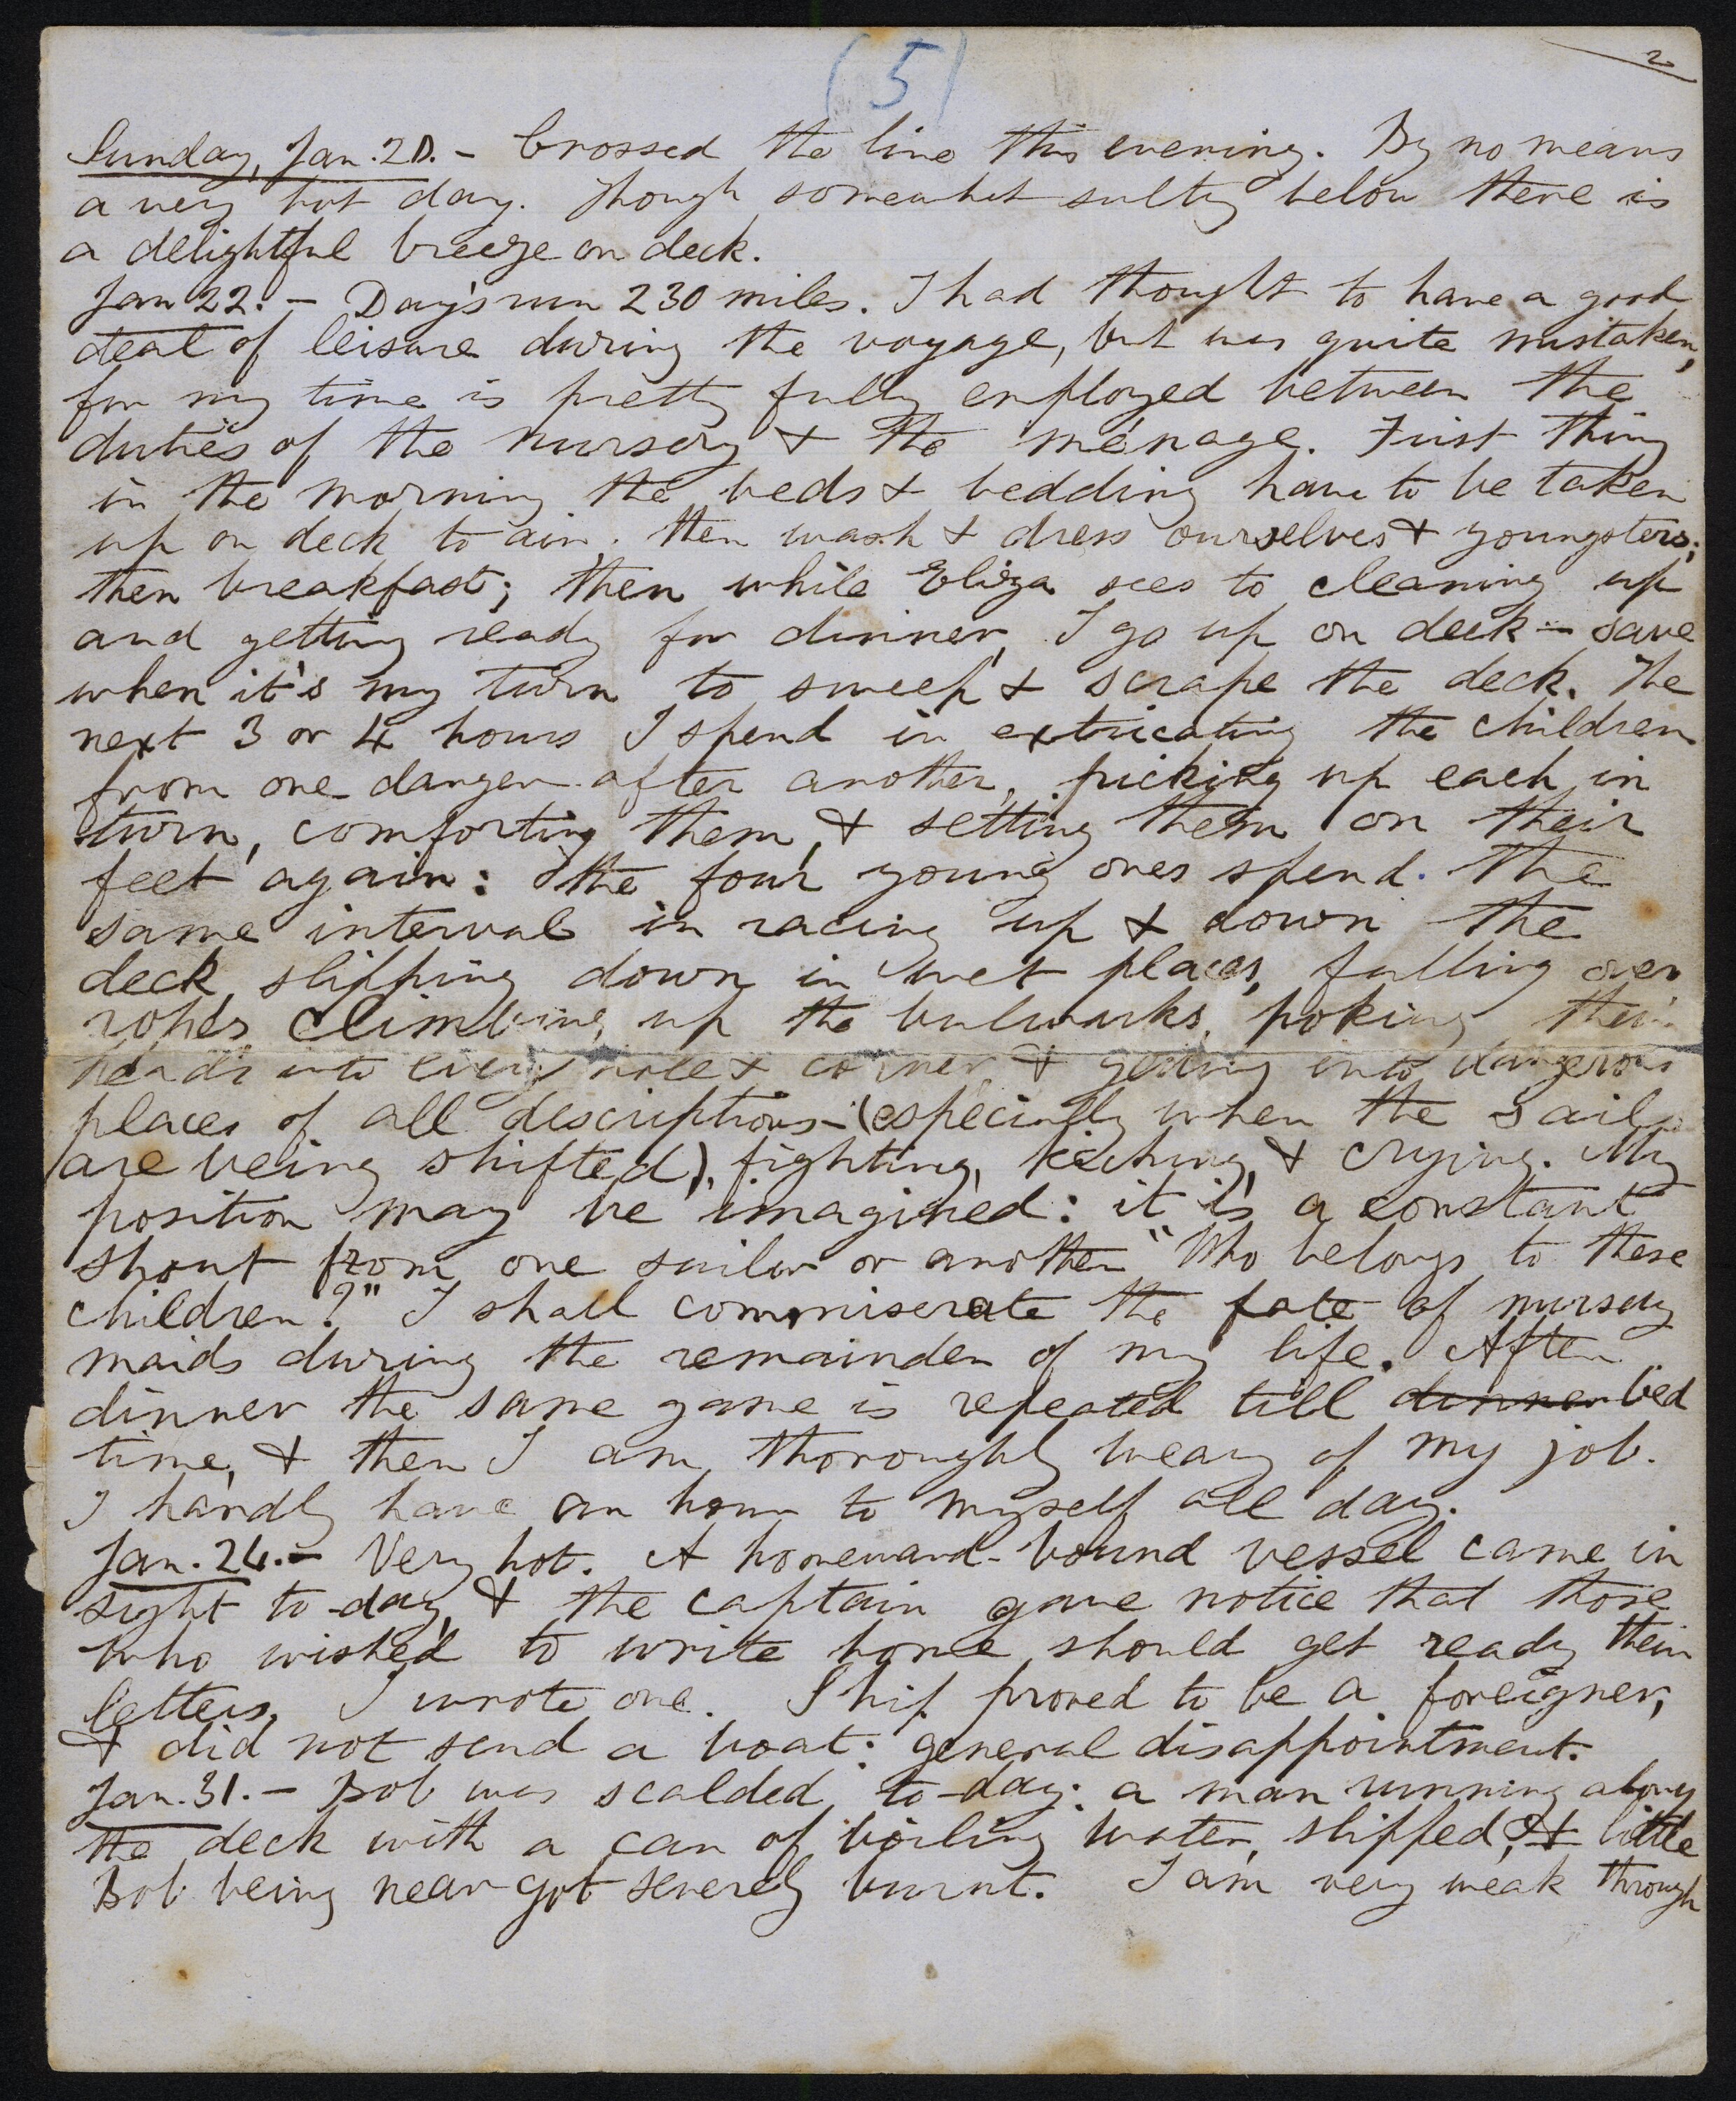 (5)
2
Sunday, Jan. 20. - Crossed the line this evening. By no means
a very hot day. Though somewhat sultry below there is
a delightful breeze on deck.
Jan 22. - Day's run 230 miles. I had thought to have a good
deal of leisure during the voyage, but was quite mistaken,
for my time is pretty fully employed between the
duties of the nursery & the ménage. First thing
in the morning the beds & bedding have to be taken
up on deck to air; then wash & dress ourselves & youngsters;
then breakfast; then while Eliza sees to cleaning up
and getting ready for dinner, I go up on deck - save
when it's my turn to sweep & scrape the deck. The
next 3 or 4 hours I spend in extricating the children
from one danger after another, picking up each in
turn, comforting them, & setting them on their
feet again: the four young ones spend the
same interval in racing up & down the
deck, slipping down in wet places, falling over
ropes, climbing up the bulwarks, poking their
heads into every hole & corner & getting into dangerous
places of all descriptions - (especially when the sails
are being shifted), fighting, kicking, & crying. My
position may be imagined: it is a constant
shout from one sailor or another "Who belongs to these
children?" I shall commiserate the fate of nursery
maids during the remainder of my life. After
dinner the same game is repeated till dinner bed
time, & then I am thoroughly weary of my job.
I hardly have an hour to myself all day.
Jan. 24. - Very hot. A homeward-bound vessel came in
sight to-day, & the captain gave notice that those
who wished to write home should get ready their
letters. I wrote one. Ship proved to be a foreigner,
& did not send a boat: general disappointment.
Jan. 31. - Bob was scalded to-day: a man running along
the deck with a can of boiling water, slipped, & little
Bob being near got severely burnt. I am very weak through